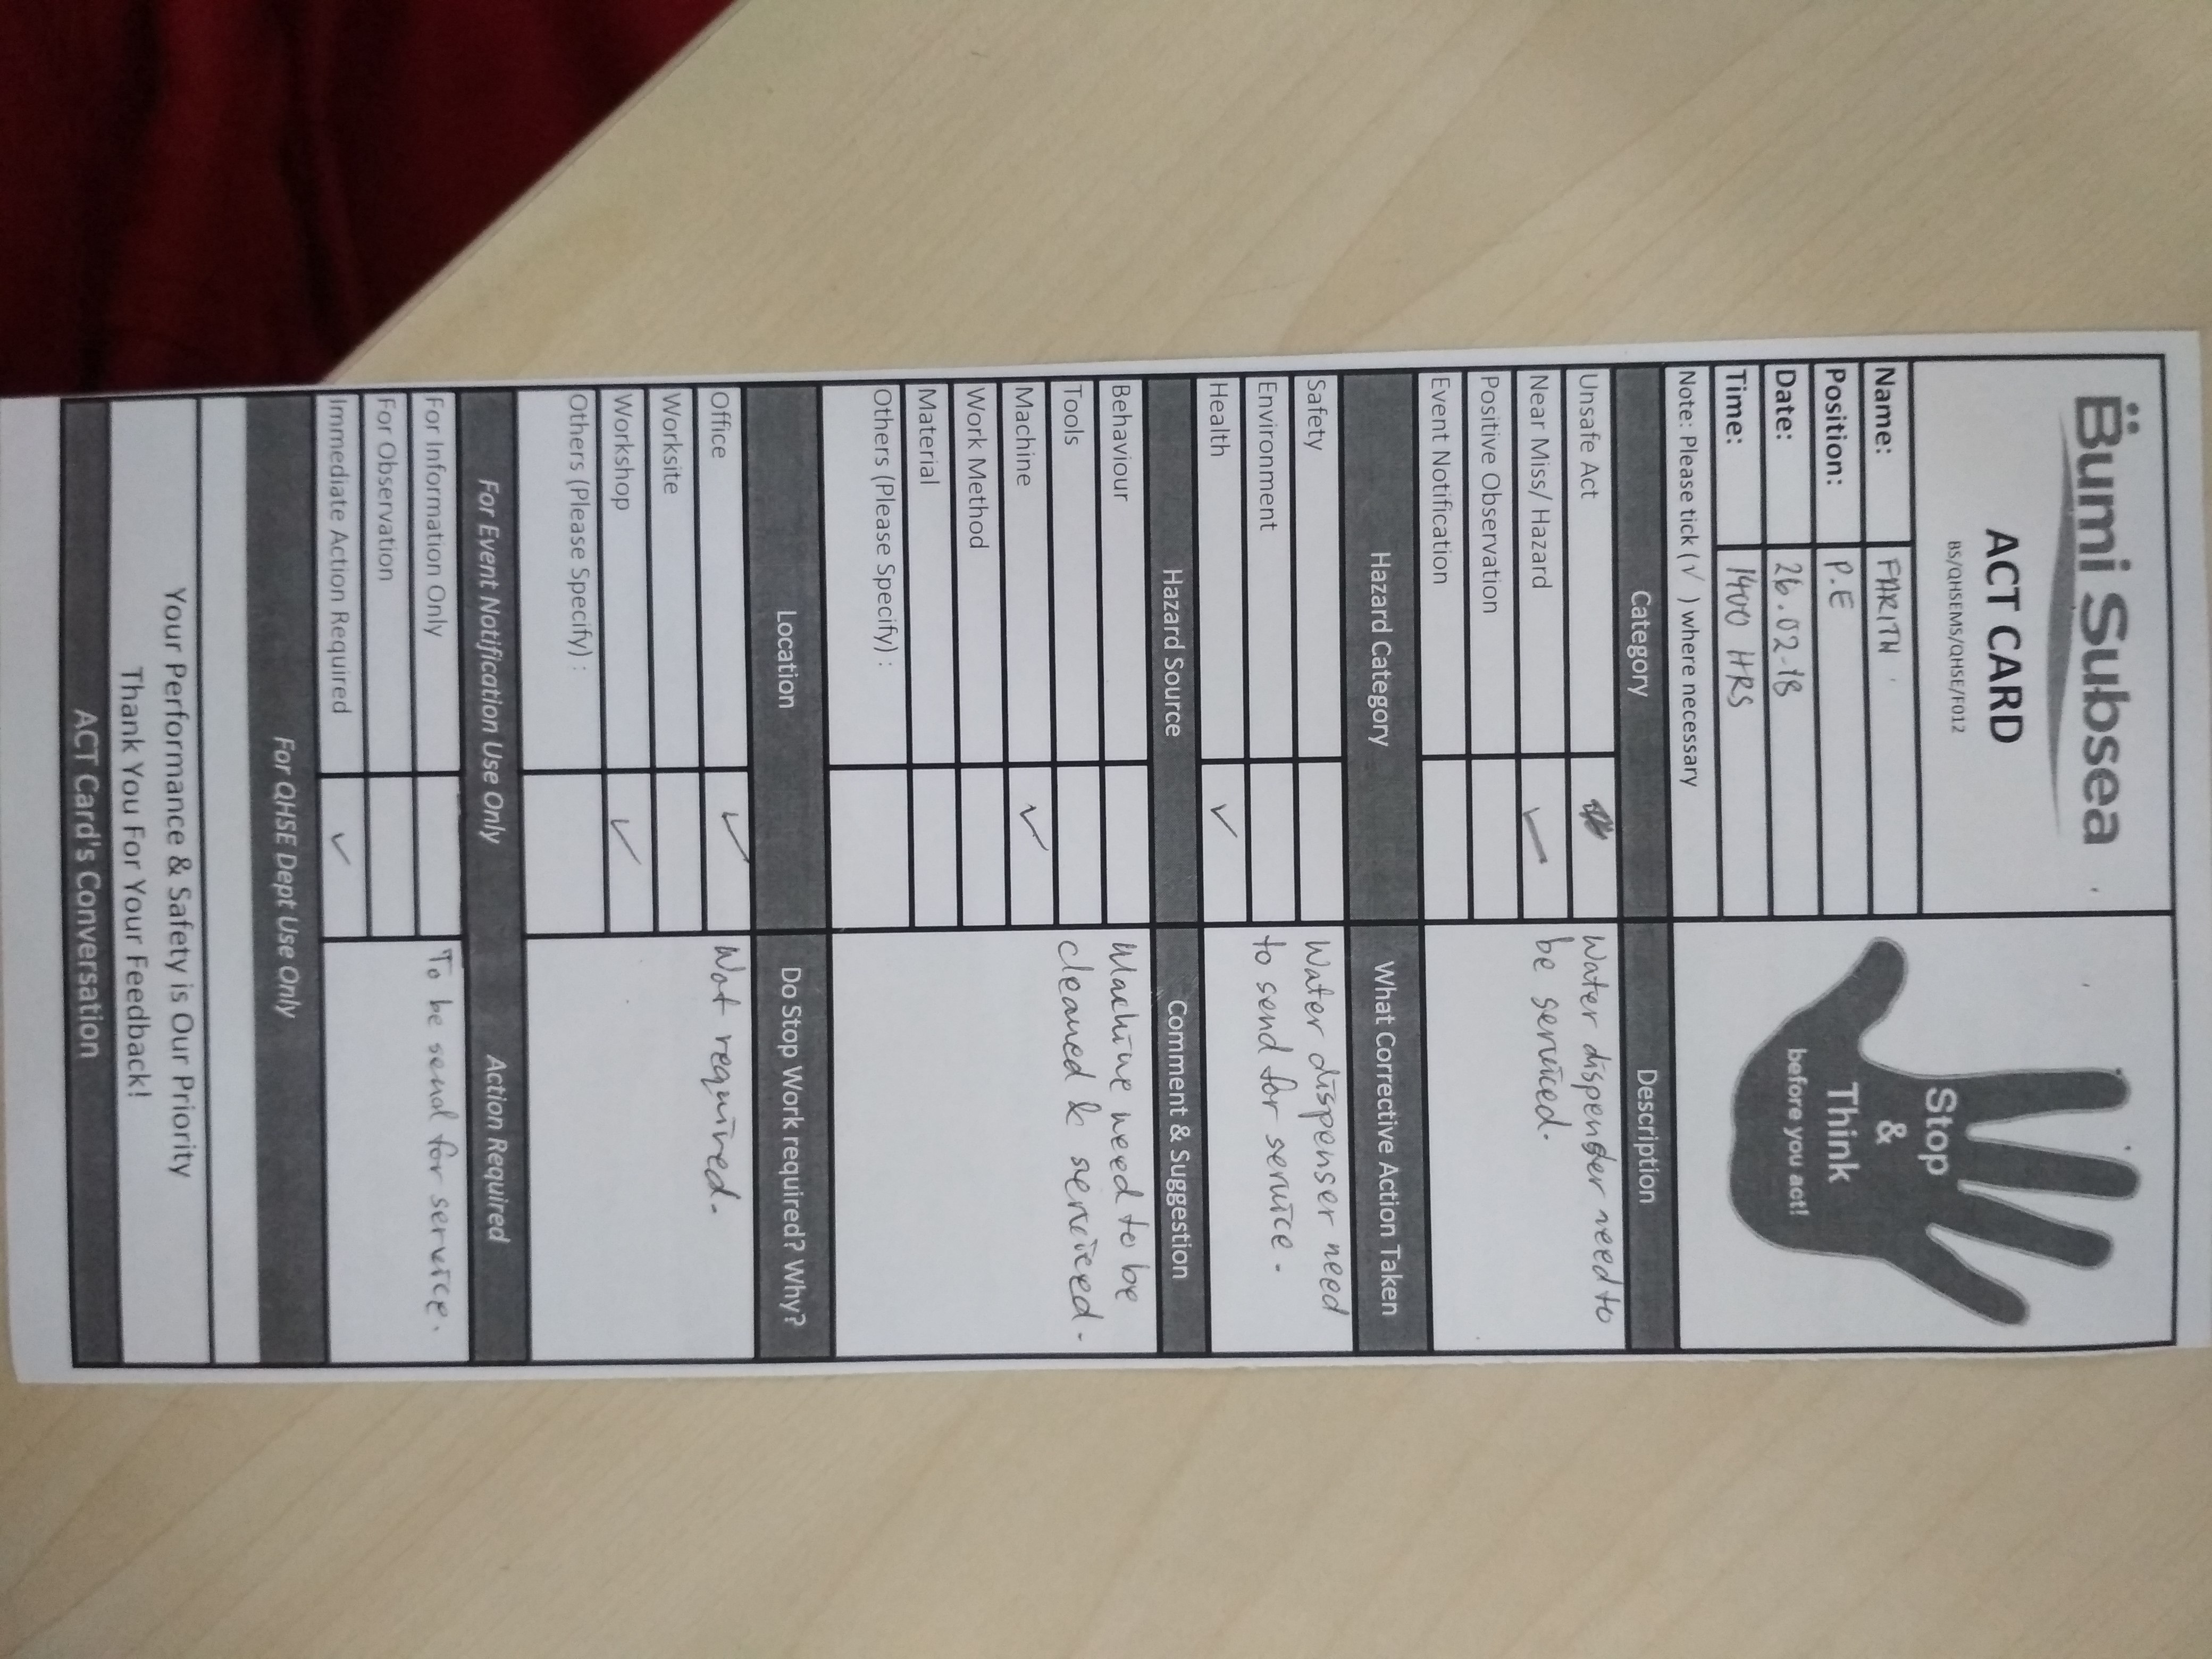 Bumi Subsea
ACT CARD
BS/QHSEMS/QHSE/F012
Stop
&
Think
before you act!
Name: FARITH
Position: P.E
Date: 26.02.18
Time: 1400 HRS
Note: Please tick (√ ) where necessary
Category Description
Unsafe Act Water dispender need to
Near Miss/ Hazard ✓ be serviced.
Positive Observation
Event Notification
Hazard Category What Corrective Action Taken
Safety Water dispenser need
Environment to send for service.
Health ✓
Hazard Source Comment & Suggestion
Behaviour Machine need to be
Tools cleaned & serviced.
Machine ✓
Work Method
Material
Others (Please Specify) :
Location Do Stop Work required? Why?
Office ✓ Not required.
Worksite
Workshop ✓
Others (Please Specify) :
For Event Notification Use Only Action Required
For Information Only To be send for service.
For Observation
Immediate Action Required ✓
For QHSE Dept Use Only
Your Performance & Safety is Our Priority
Thank You For Your Feedback!
ACT Card's Conversation